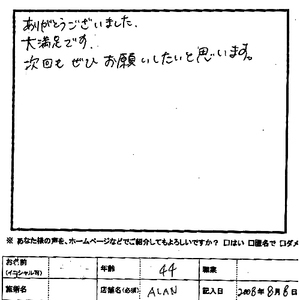 ありがとうございました.
大満足です.
次回も ぜひ お願いしたいと思います。
※ あなた様の声を、ホームページなどでご紹介してもよろしいですか? □はい □匿名で □ダメ
お名前
(イニシャル可)
年齢 44 職業
施術名 店舗名(必須) ALAN 記入日 2008年8月8日